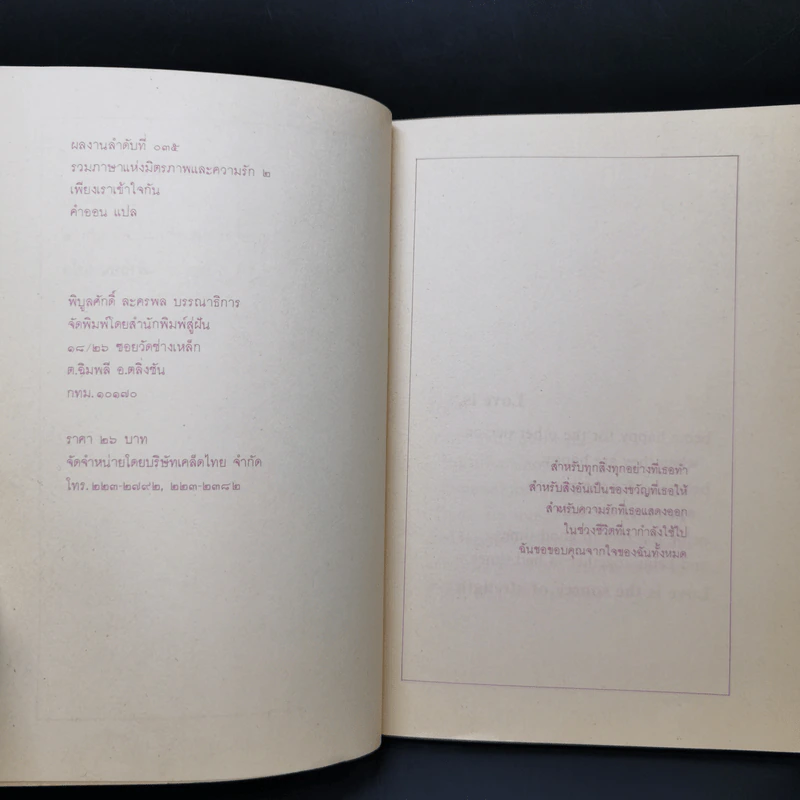 ผลงานลำดับที่ ๐๓๕
รวมภาษาแห่งมิตรภาพและความรัก ๒
เพียงเราเข้าใจกัน
คำออน แปล
พิบูลศักดิ์ ละครพล บรรณาธิการ
จัดพิมพ์โดยสำนักพิมพ์สู่ฝัน
๑๘/๒๖ ซอยวัดช่างเหล็ก
ต.ฉิมพลี อ.ตลิ่งชัน
กทม.๑๐๑๗๐
ราคา ๒๖ บาท
จัดจำหน่ายโดยบริษัทเคล็ดไทย จำกัด
โทร.๒๒๓-๒๗๙๒, ๒๒๓-๒๓๘๒
สำหรับทุกสิ่งทุกอย่างที่เธอทำ
สำหรับสิ่งอันเป็นของขวัญที่เธอให้
สำหรับความรักที่เธอแสดงออก
ในช่วงชีวิตที่เรากำลังใช้ไป
ฉันขอขอบคุณจากใจของฉันทั้งหมด